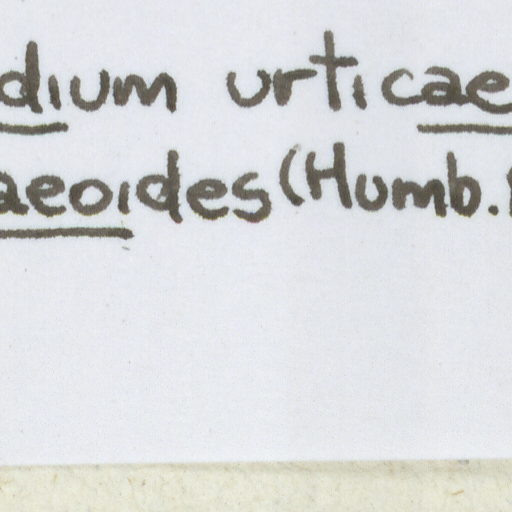 dium urticae
aeoides (Humb.